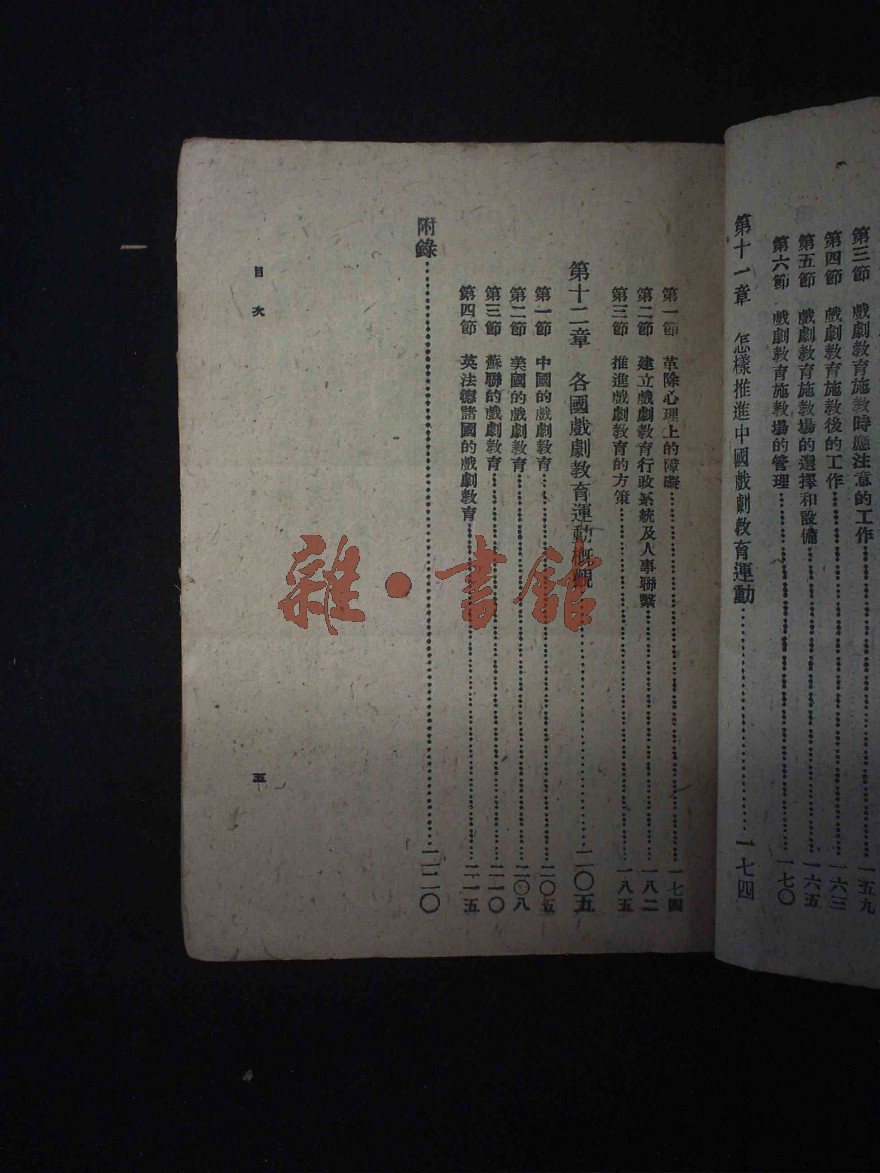 第三節 戲劇教育施教時應注意的工作……一五九
第四節 戲劇教育施教後的工作……一六三
第五節 戲劇教育施教場的選擇和設備……一六五
第六節 戲劇教育施教場的管理……一七〇
第十一章 怎樣推進中國戲劇教育運動……一七四
第一節 革除心理上的障礙……一七四
第二節 建立戲劇教育行政系統及人事聯繫……一八二
第三節 推進戲劇教育的方策……一八五
第十二章 各國戲劇教育運動概觀……二〇五
第一節 中國的戲劇教育……二〇五
第二節 美國的戲劇教育……二〇八
第三節 蘇聯的戲劇教育……二一〇
第四節 英法德諸國的戲劇教育……二一五
附錄……二二〇
目次
五
雜·書館